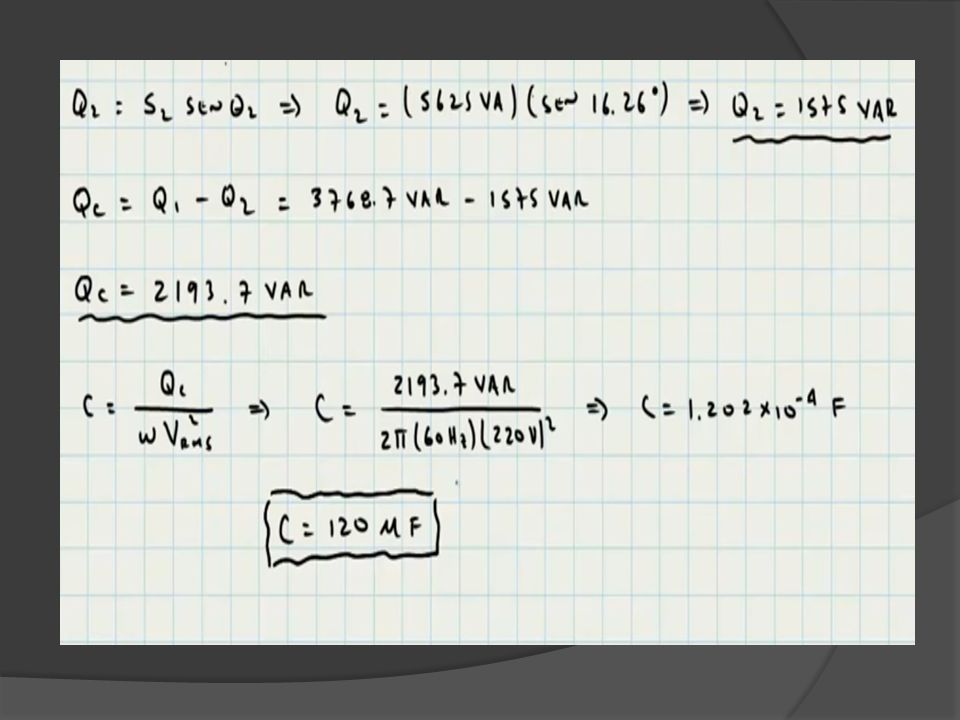 Q₂ : S₂ SEN Θ₂ => Q₂ = (5625 VA) (SEN 16.26°) => Q₂ = 1575 VAR
Qc = Q₁ - Q₂ = 3768.7 VAR - 1575 VAR
Qc = 2193.7 VAR
C = Qc / ω V²RMS => C = 2193.7 VAR / 2π (60 Hz) (220 V)² => C = 1.202 x 10⁻⁴ F
C = 120 μF